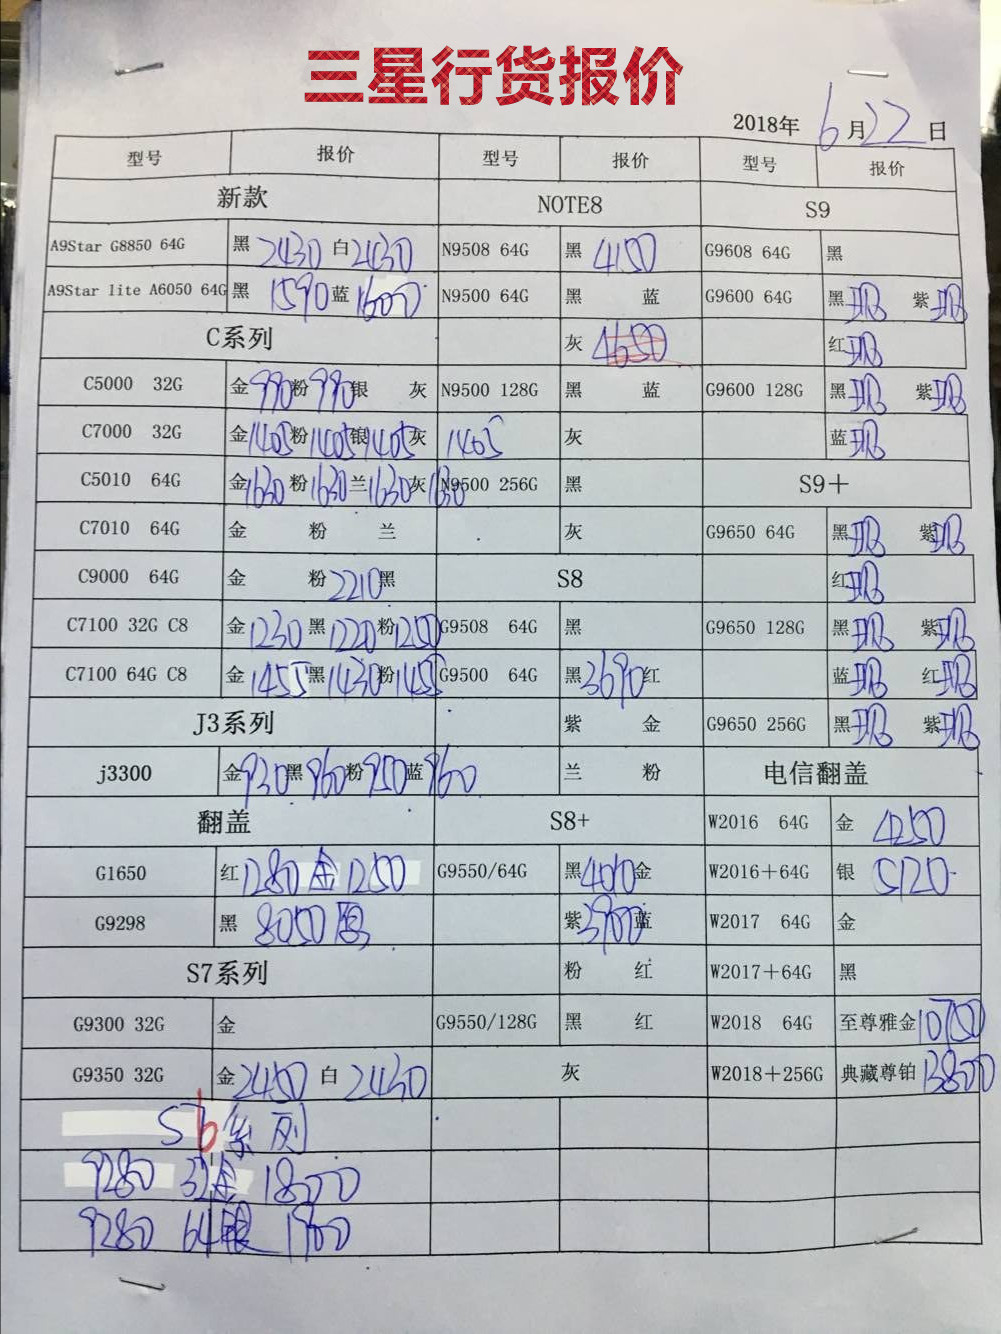 三星行货报价
2018年 6月22日
型号 报价 型号 报价 型号 报价
新款 NOTE8 S9
A9Star G8850 64G 黑 2430 白 2430 N9508 64G 黑 4150 G9608 64G 黑
A9Star lite A6050 64G 黑 1590 蓝 1600 N9500 64G 黑 蓝 G9600 64G 黑 现 紫 现
C系列 灰 4650 红 现
C5000 32G 金 990 粉 990 银 灰 N9500 128G 黑 蓝 G9600 128G 黑 现 紫 现
C7000 32G 金 1405 粉 1405 银 1405 灰 1405 灰 蓝 现
C5010 64G 金 1630 粉 1630 兰 1630 灰 1630 N9500 256G 黑 S9+
C7010 64G 金 粉 兰 灰 G9650 64G 黑 现 紫 现
C9000 64G 金 粉 2210 黑 S8 红 现
C7100 32G C8 金 1230 黑 1220 粉 1250 G9508 64G 黑 G9650 128G 黑 现 紫 现
C7100 64G C8 金 1455 黑 1430 粉 1455 G9500 64G 黑 3690 红 蓝 现 红 现
J3系列 紫 金 G9650 256G 黑 现 紫 现
j3300 金 930 黑 960 粉 950 蓝 960 兰 粉 电信翻盖
翻盖 S8+ W2016 64G 金 4250
G1650 红 1280 金 1250 G9550/64G 黑 金 W2016+64G 银 5120
G9298 黑 8050 紫 3900 蓝 W2017 64G 金
S7系列 粉 红 W2017+64G 黑
G9300 32G 金 G9550/128G 黑 红 W2018 64G 至尊雅金 10750
G9350 32G 金 2450 白 2430 灰 W2018+256G 典藏尊铂 13800
S6系列
9280 32金 1800
9280 64银 1900